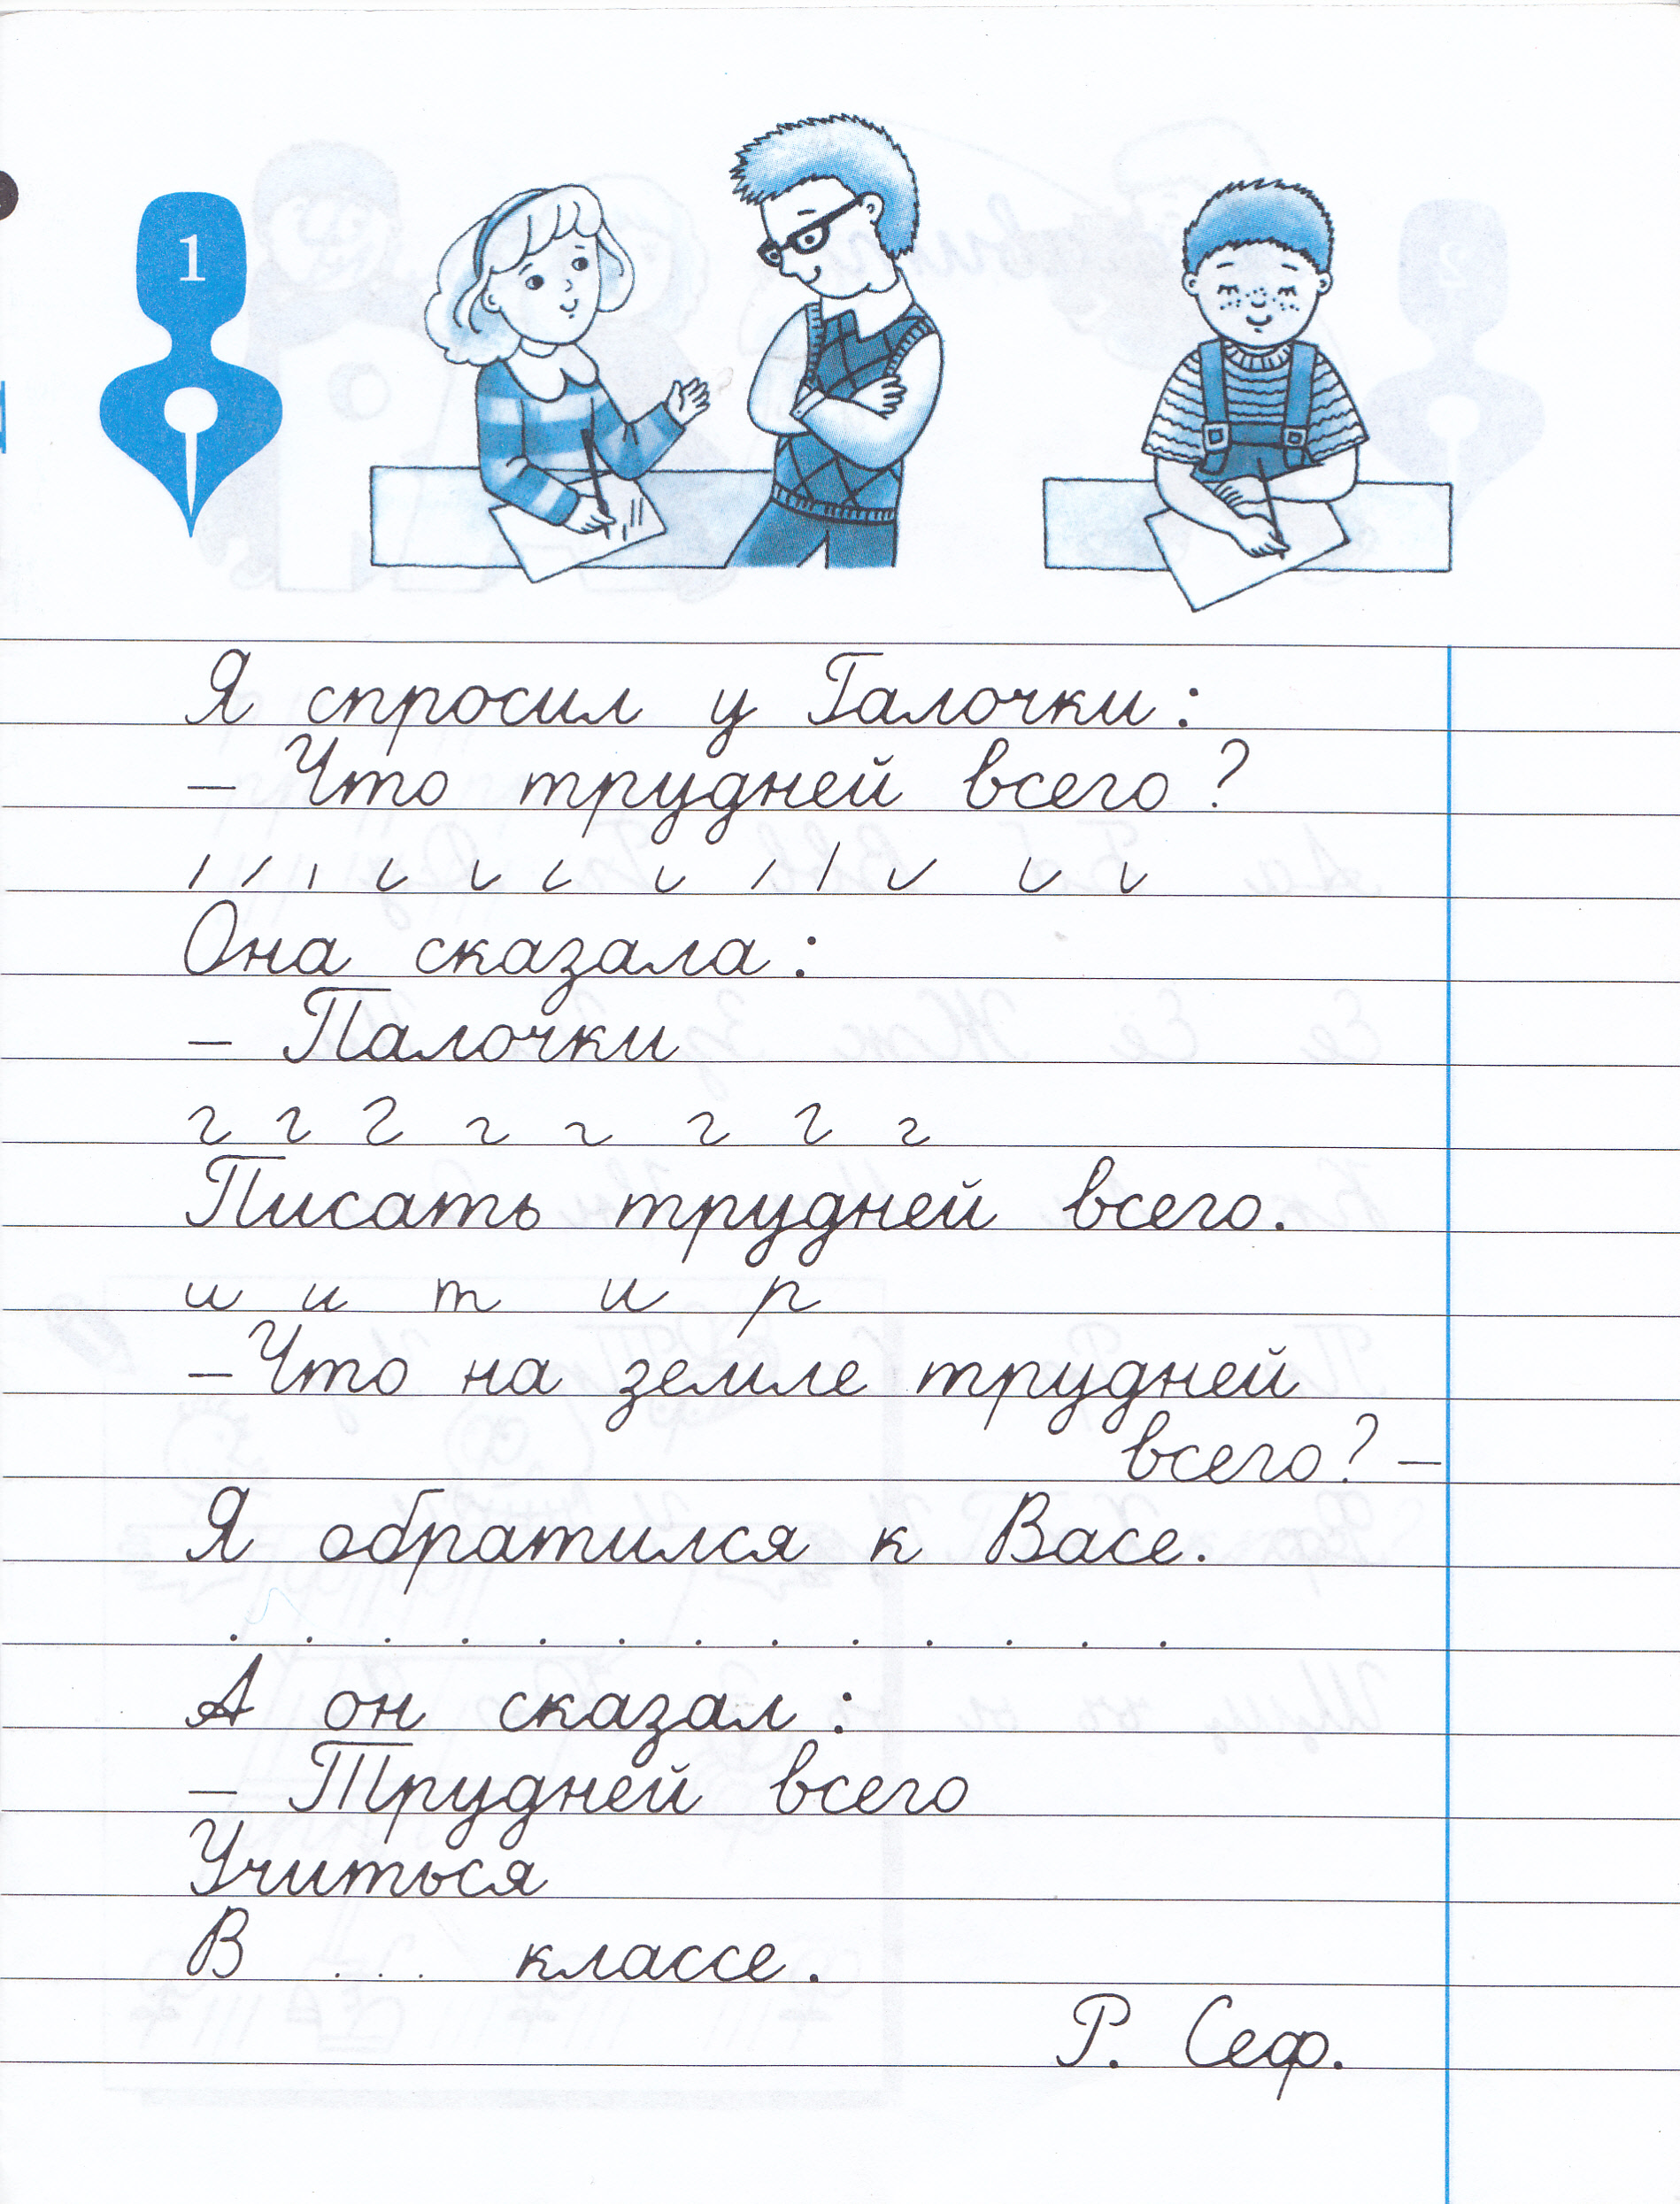 1
Я спросил у Галочки:
– Что трудней всего?
Она сказала:
– Палочки
г г г г г г г г
Писать трудней всего.
и и т и р
– Что на земле трудней
всего? –
Я обратился к Васе.
. . . . . . . . . . . . .
А он сказал:
– Трудней всего
Учиться
В ... классе.
Р. Сеф.